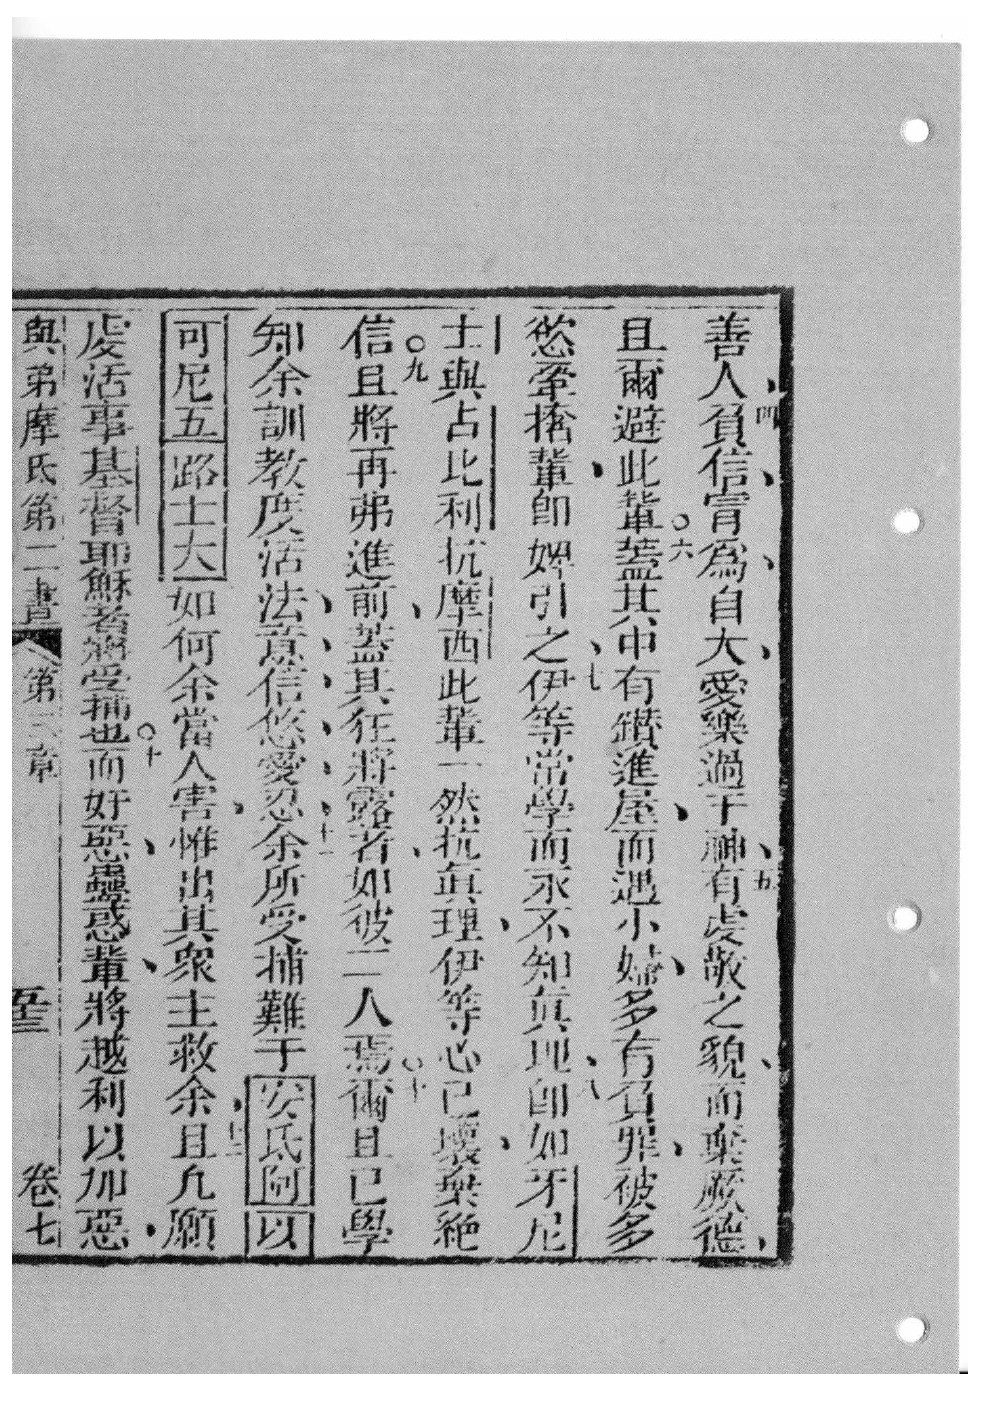 善人四負信宵為自大愛樂過于神五有虔敬之貌而棄厥德
且爾避此輩○六蓋其中有鑽進屋而遇小婦多有負罪被多
慾牽搭輩即婢引之七伊等常學而永不知真理八即如牙尼
士與占比利抗摩西此輩一然抗真理伊等心已壞棄絕
信○九且將再弗進前蓋其狂將露者如彼二人焉○十爾且已學
知余訓教度活法意信悠愛忍十一余所受捕難于安氐阿以
可尼五路士大如何余當人害惟出其眾主救余十二且凡願
虔活事基督耶穌者將受捕也○十而奸惡蠱惑輩將越利以加惡
與弟摩氐第二書 第三章 卷七